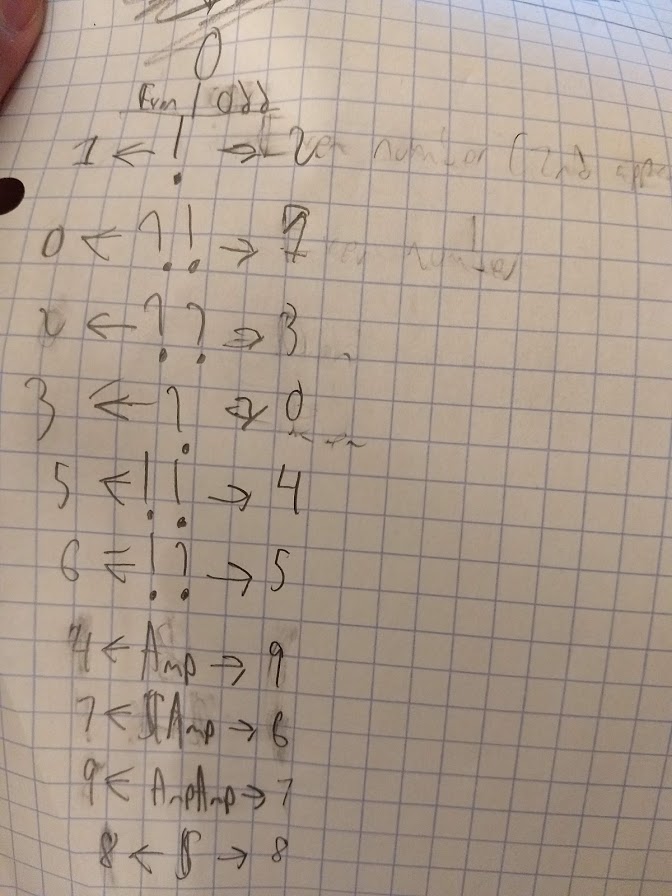 0
Even / Odd
1 ← ! → 2 number (2nd
0 ← ?! → 7 number
2 ← ?? → 3
3 ← ? → 0
5 ← !! → 4
6 ← !? → 5
4 ← Amp → 9
7 ← $Amp → 6
9 ← AmpAmp → 7
8 ← $ → 8